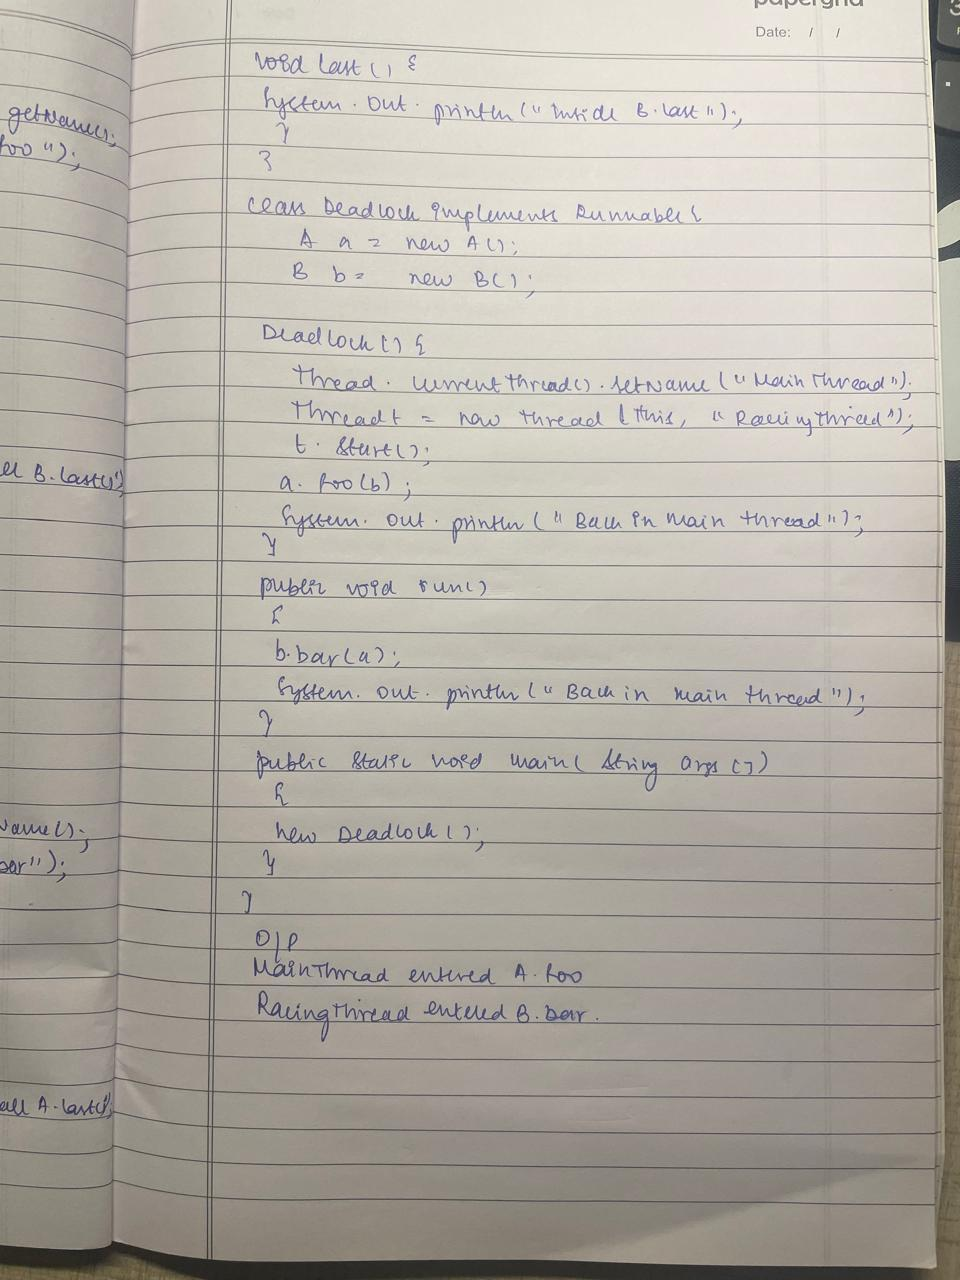 papergrid
Date: / /
getName();
foo");
all B.last()");
Name();
bar");
all A.last()");
void last () {
System. out. println (" Inside B.last ");
}
}
class Deadlock implements Runnable {
A a = new A();
B b = new B();
Deadlock () {
Thread. currentThread(). setName (" Main Thread");
Thread t = new Thread (this, " Racing thread");
t. start();
a. foo(b);
System. out. println (" Back in main thread");
}
public void run()
{
b.bar(a);
System. out. println (" Back in main thread ");
}
public static void main( String args [])
{
new Deadlock ();
}
}
O/P
MainThread entered A. foo
Racing thread entered B. bar.